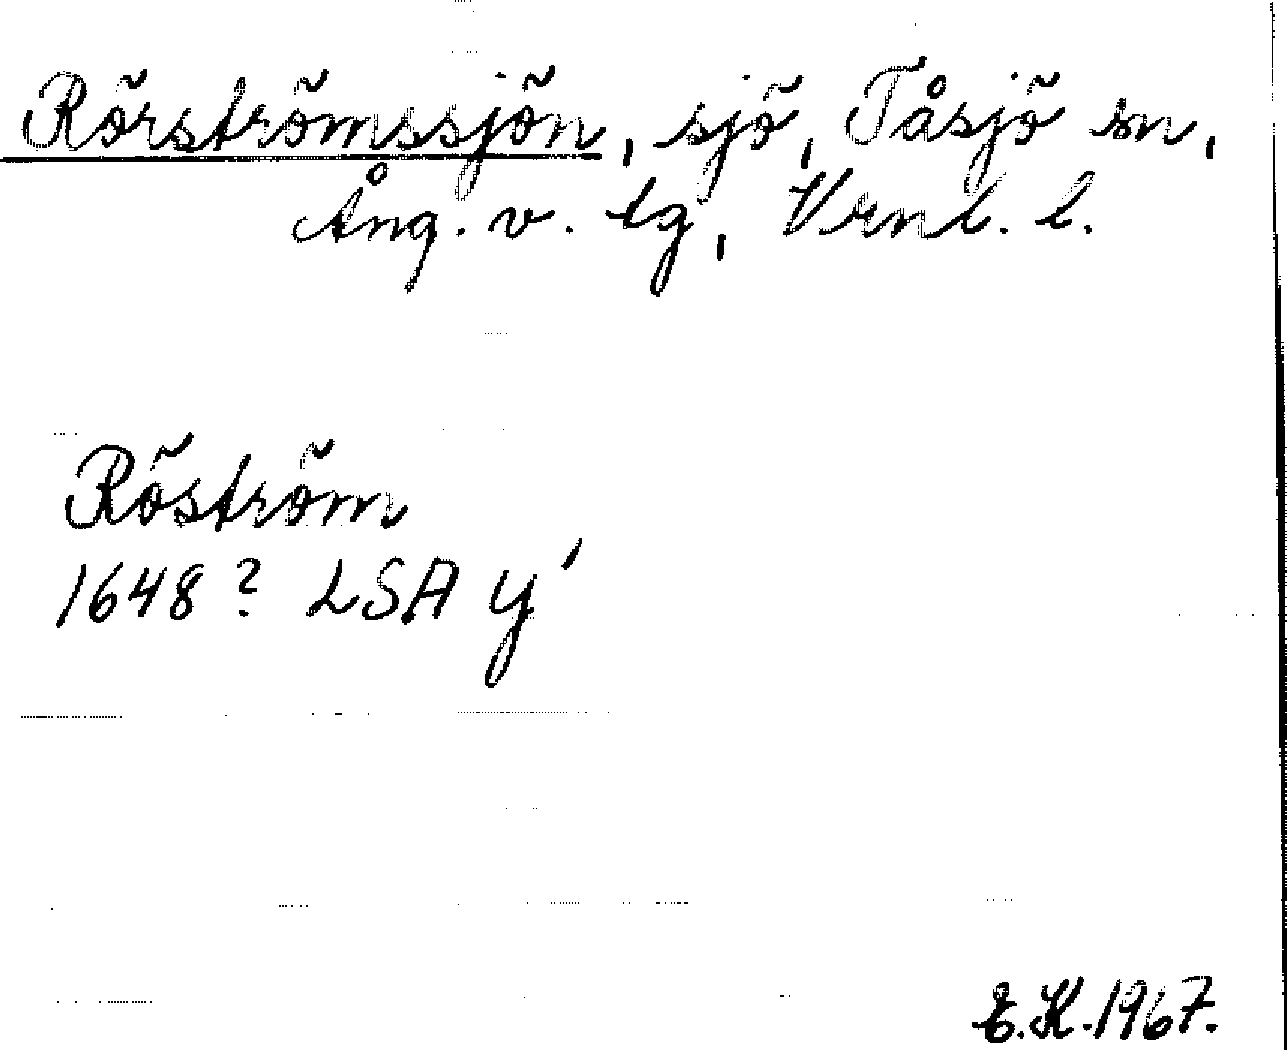 Rörströmssjön, sjö, Tåsjö sn,
Ång. v. tg, Vrnl. l.
Röström
1648? LSA y'
E.K. 1967.